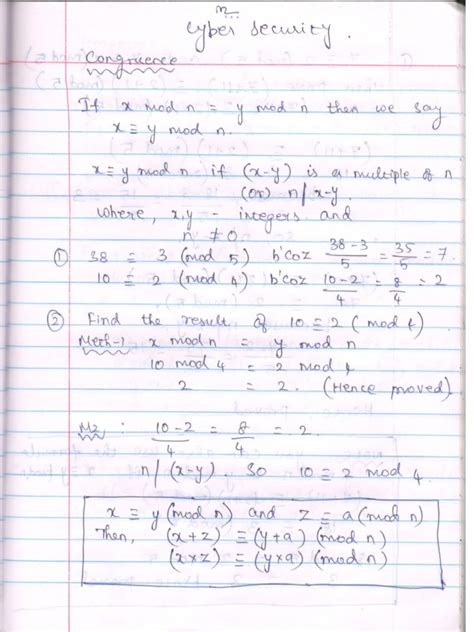 Cyber security.
Congruence
If x mod n = y mod n then we say
x ≡ y mod n.
x ≡ y mod n if (x-y) is a multiple of n
(or) n/x-y.
where, x,y - integers and
n ≠ 0
① 38 ≡ 3 (mod 5) b'coz 38-3/5 = 35/5 = 7.
10 ≡ 2 (mod 4) b'coz 10-2/4 = 8/4 = 2
② Find the result of 10 ≡ 2 (mod 4)
Meth-1 x mod n = y mod n
10 mod 4 = 2 mod 4
2 = 2. (Hence proved)
M2 : 10-2/4 = 8/4 = 2.
n/(x-y). So 10 ≡ 2 mod 4.
x ≡ y (mod n) and z ≡ a (mod n)
Then, (x+z) ≡ (y+a) (mod n)
(x×z) ≡ (y×a) (mod n)